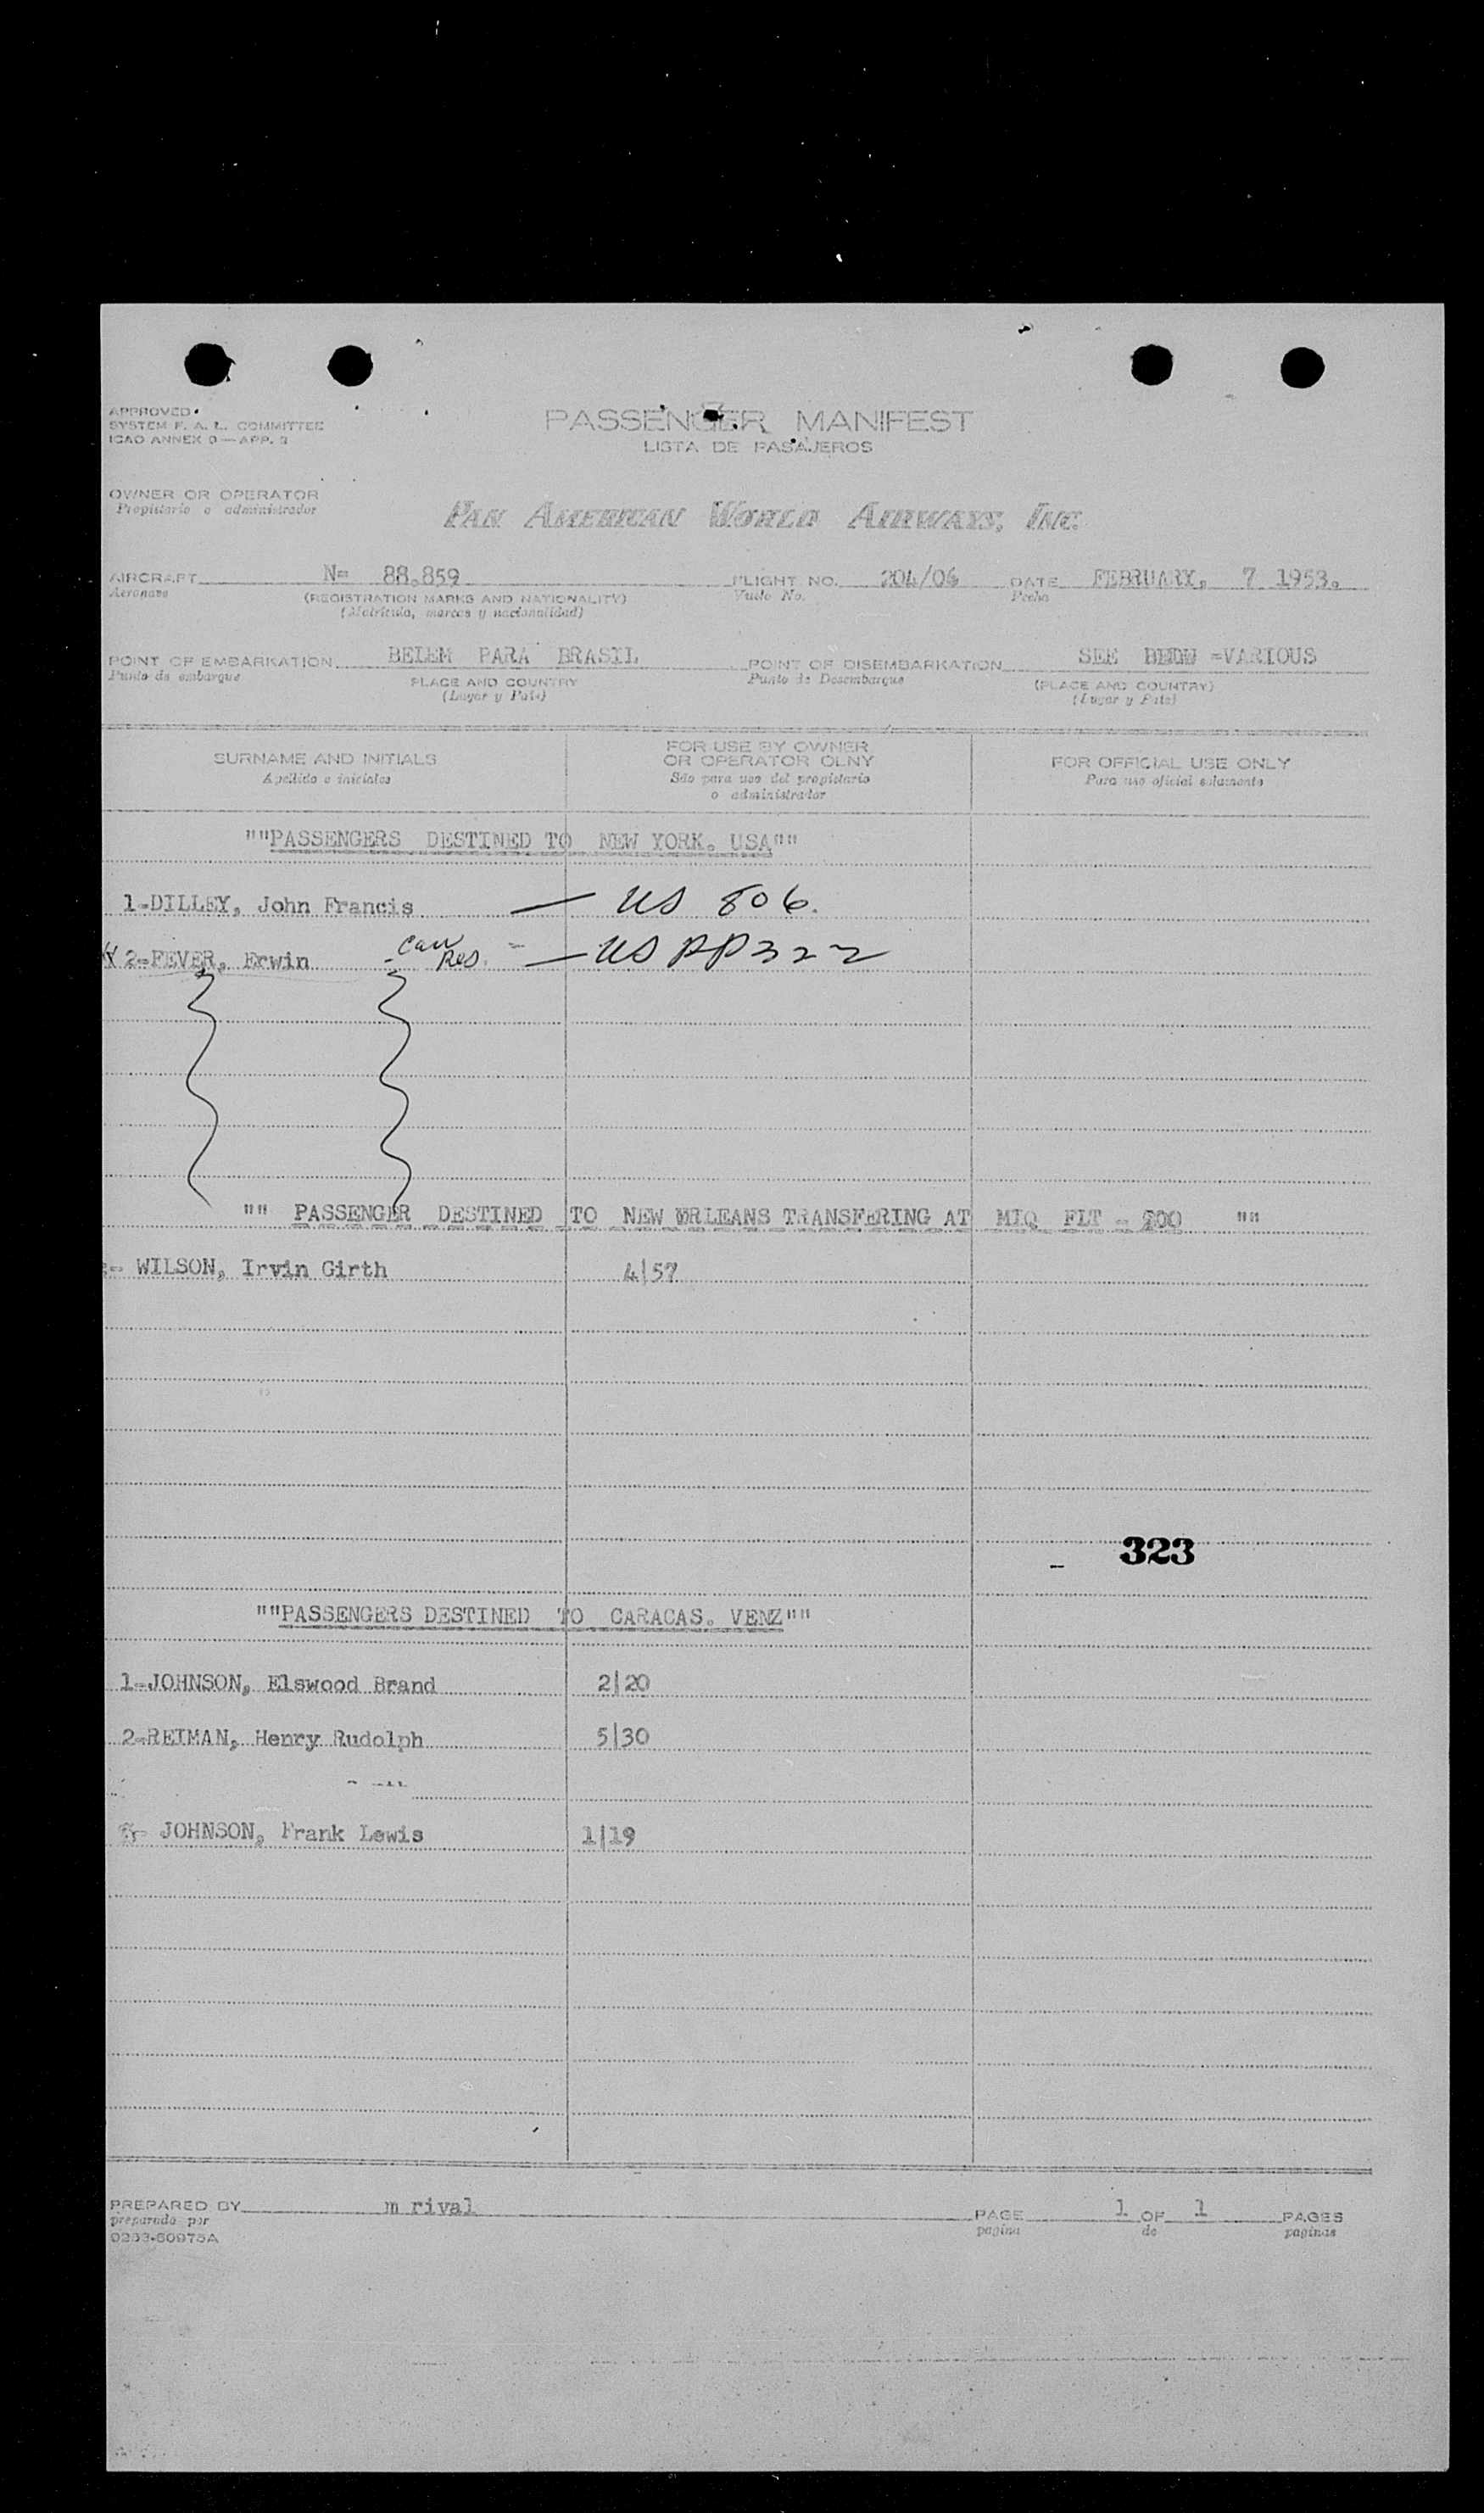 APPROVED
SYSTEM F. A. L. COMMITTEE
ICAO ANNEX 9—APP. 3
PASSENGER MANIFEST
LISTA DE PASAJEROS
OWNER OR OPERATOR
Propietario o administrador
PAN AMERICAN WORLD AIRWAYS, INC.
AIRCRAFT N= 88.859 FLIGHT NO. 204/06 DATE FEBRUARY, 7 1953.
Aeronave (REGISTRATION MARKS AND NATIONALITY) Vuelo No. Fecha
(Matricula, marcas y nacionalidad)
POINT OF EMBARKATION BELEM PARA BRASIL POINT OF DISEMBARKATION SEE =VARIOUS
Punto de embarque PLACE AND COUNTRY Punto de Desembarque (PLACE AND COUNTRY)
(Lugar y Pais) (Lugar y Pais)
SURNAME AND INITIALS FOR USE BY OWNER OR OPERATOR OLNY FOR OFFICIAL USE ONLY
Apellido e iniciales Sólo para uso del propietario o administrador Para uso oficial solamente
""PASSENGERS DESTINED TO NEW YORK. USA""
1-DILLEY, John Francis — US 806.
2-FEVER, Erwin Can Res. — US PP322
"" PASSENGER DESTINED TO NEW ORLEANS TRANSFERING AT MIQ FLT - 200 ""
- WILSON, Irvin Girth 4|57
323
""PASSENGERS DESTINED TO CARACAS. VENZ""
1-JOHNSON, Elswood Brand 2|20
2-REIMAN, Henry Rudolph 5|30
JOHNSON, Frank Lewis 1|19
PREPARED BY m rival PAGE 1 OF 1 PAGES
preparado por pagina de paginas
0233-60975A